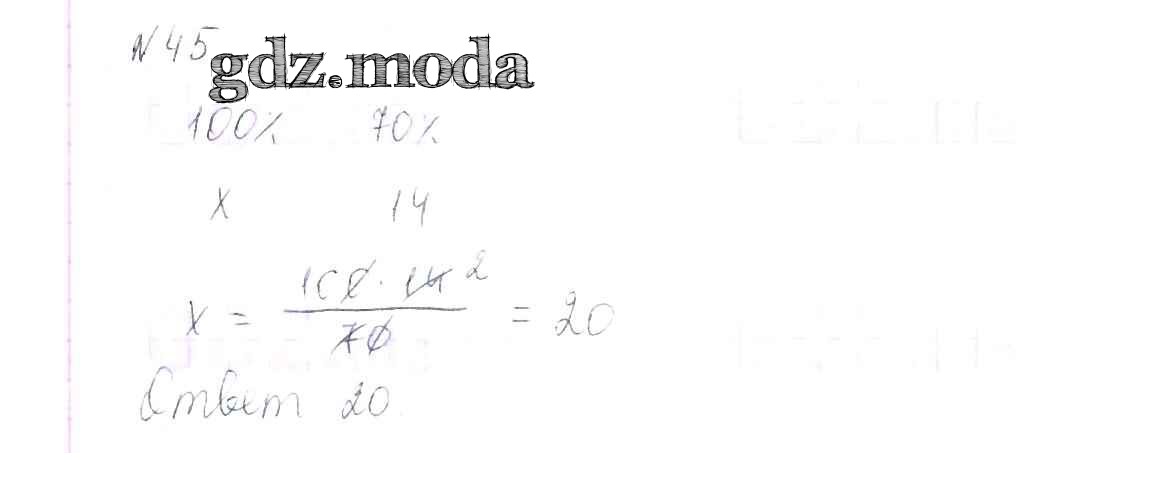 № 45
gdz.moda
100% 70%
x 14
x = 100 · 14 2 / 70 = 20
Ответ 20.